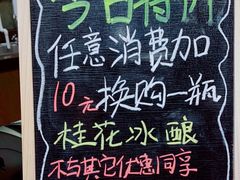 今日特价
任意消费加
10元换购一瓶
桂花冰酿
不与其它优惠同享